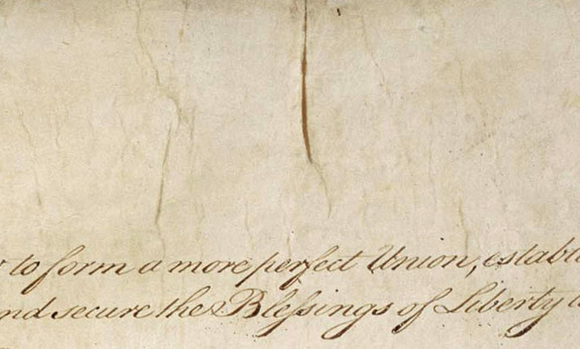 to form a more perfect Union, establi
nd secure the Blessings of Liberty